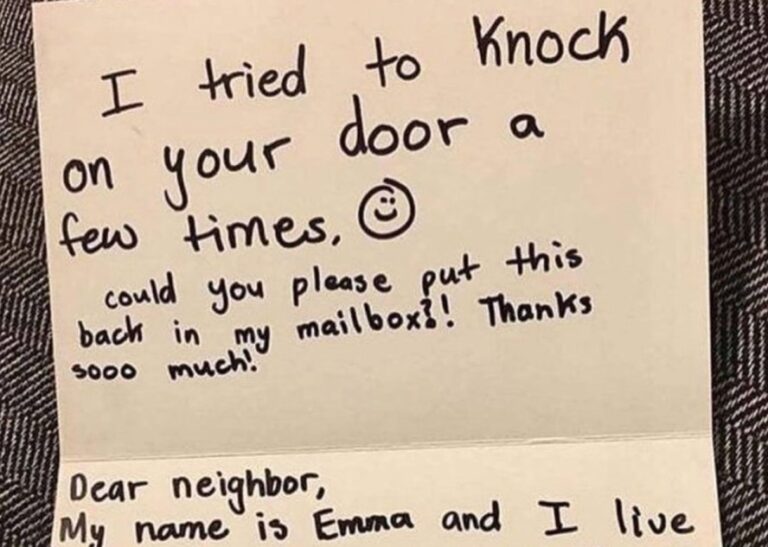 I tried to Knock
on your door a
few times. ☺
could you please put this
back in my mailbox?! Thanks
sooo much!
Dear neighbor,
My name is Emma and I live